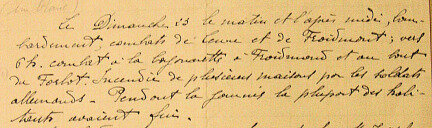 Le Dimanche 23 le matin et l'après midi, bom-
bardement, combats de Leuve et de Froidmont; vers
6 h. combat à la bayonnette à Froidmond et au bout
de Forlot. Incendie de plusieurs maisons par les soldats
allemands. Pendant la journée la plupart des habi-
tants avaient fui.